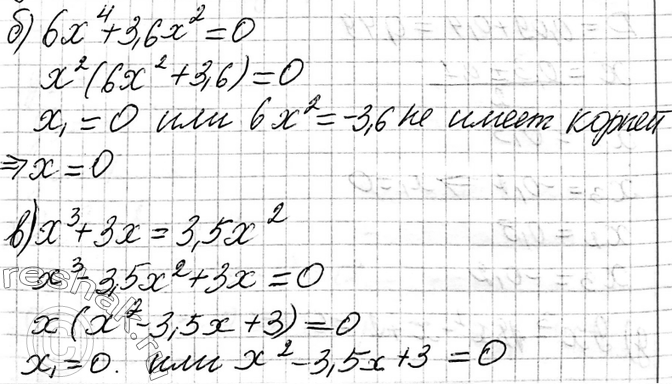 б) 6x⁴+3,6x²=0
x²(6x²+3,6)=0
x₁=0 или 6x²=-3,6 не имеет корней
⇒x=0
в) x³+3x=3,5x²
x³-3,5x²+3x=0
x(x²-3,5x+3)=0
x₁=0. или x²-3,5x+3=0
reshak.ru